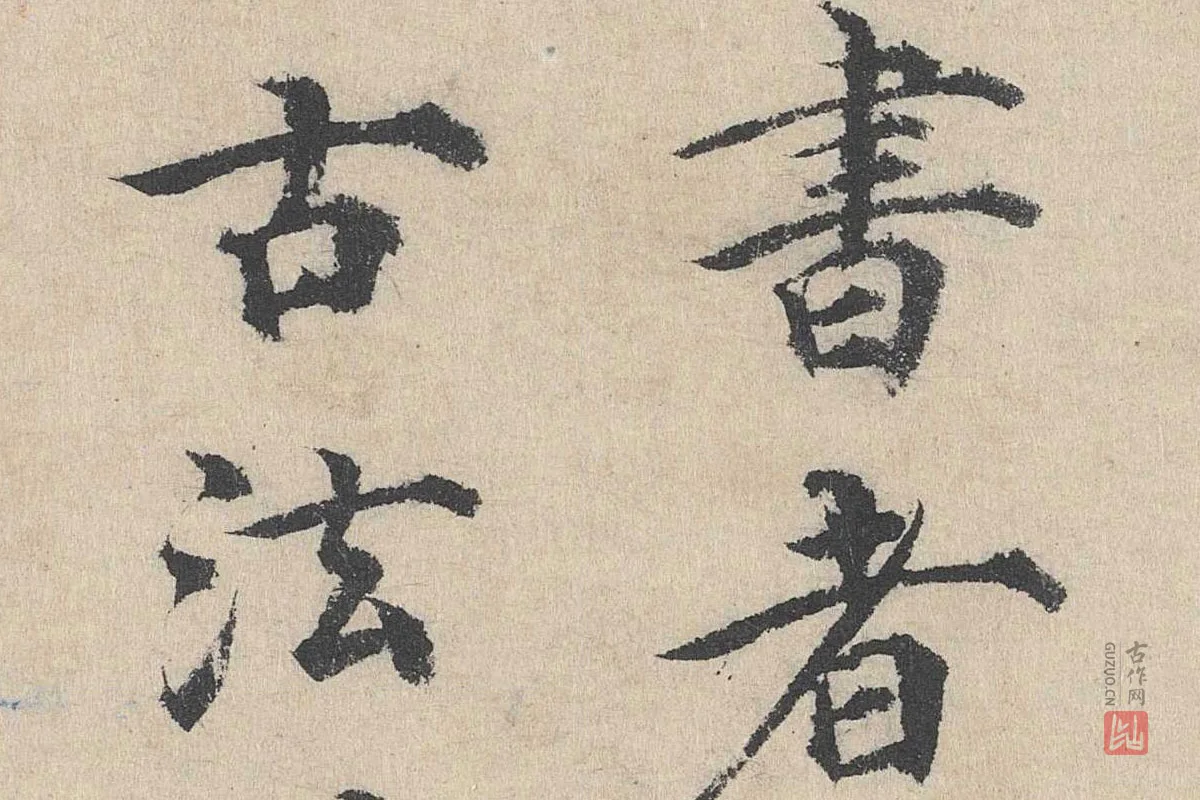 書者
古法
古作网
GUZUO.CN